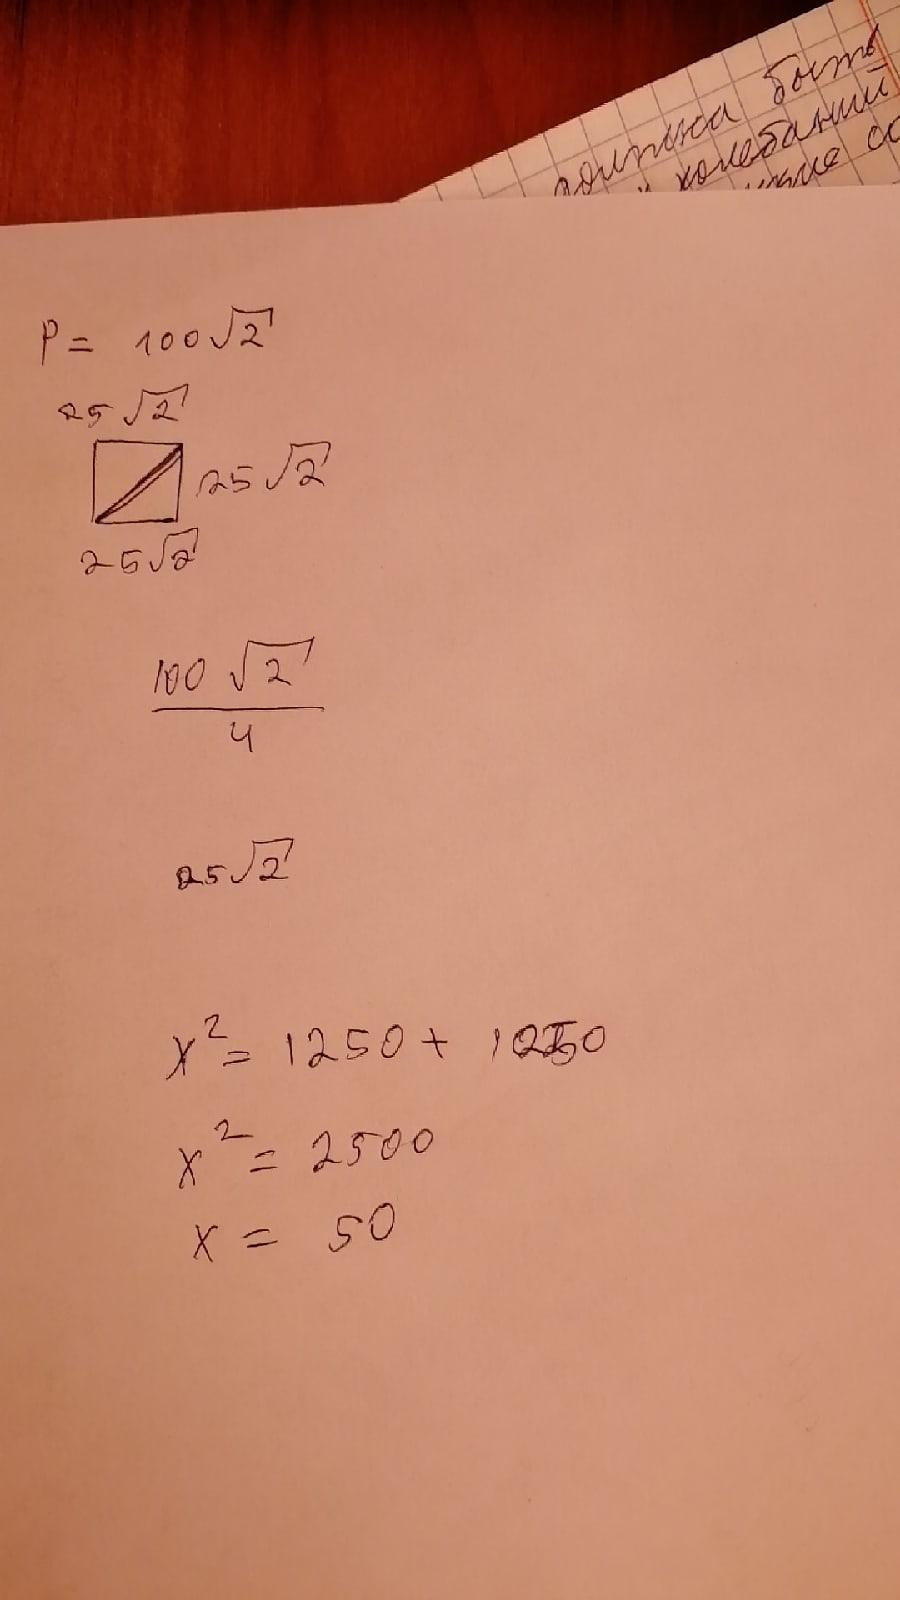 быть
колебаний
P = 100√2
25√2
25√2
25√2
100√2
4
25√2
x² = 1250 + 1250
x² = 2500
x = 50